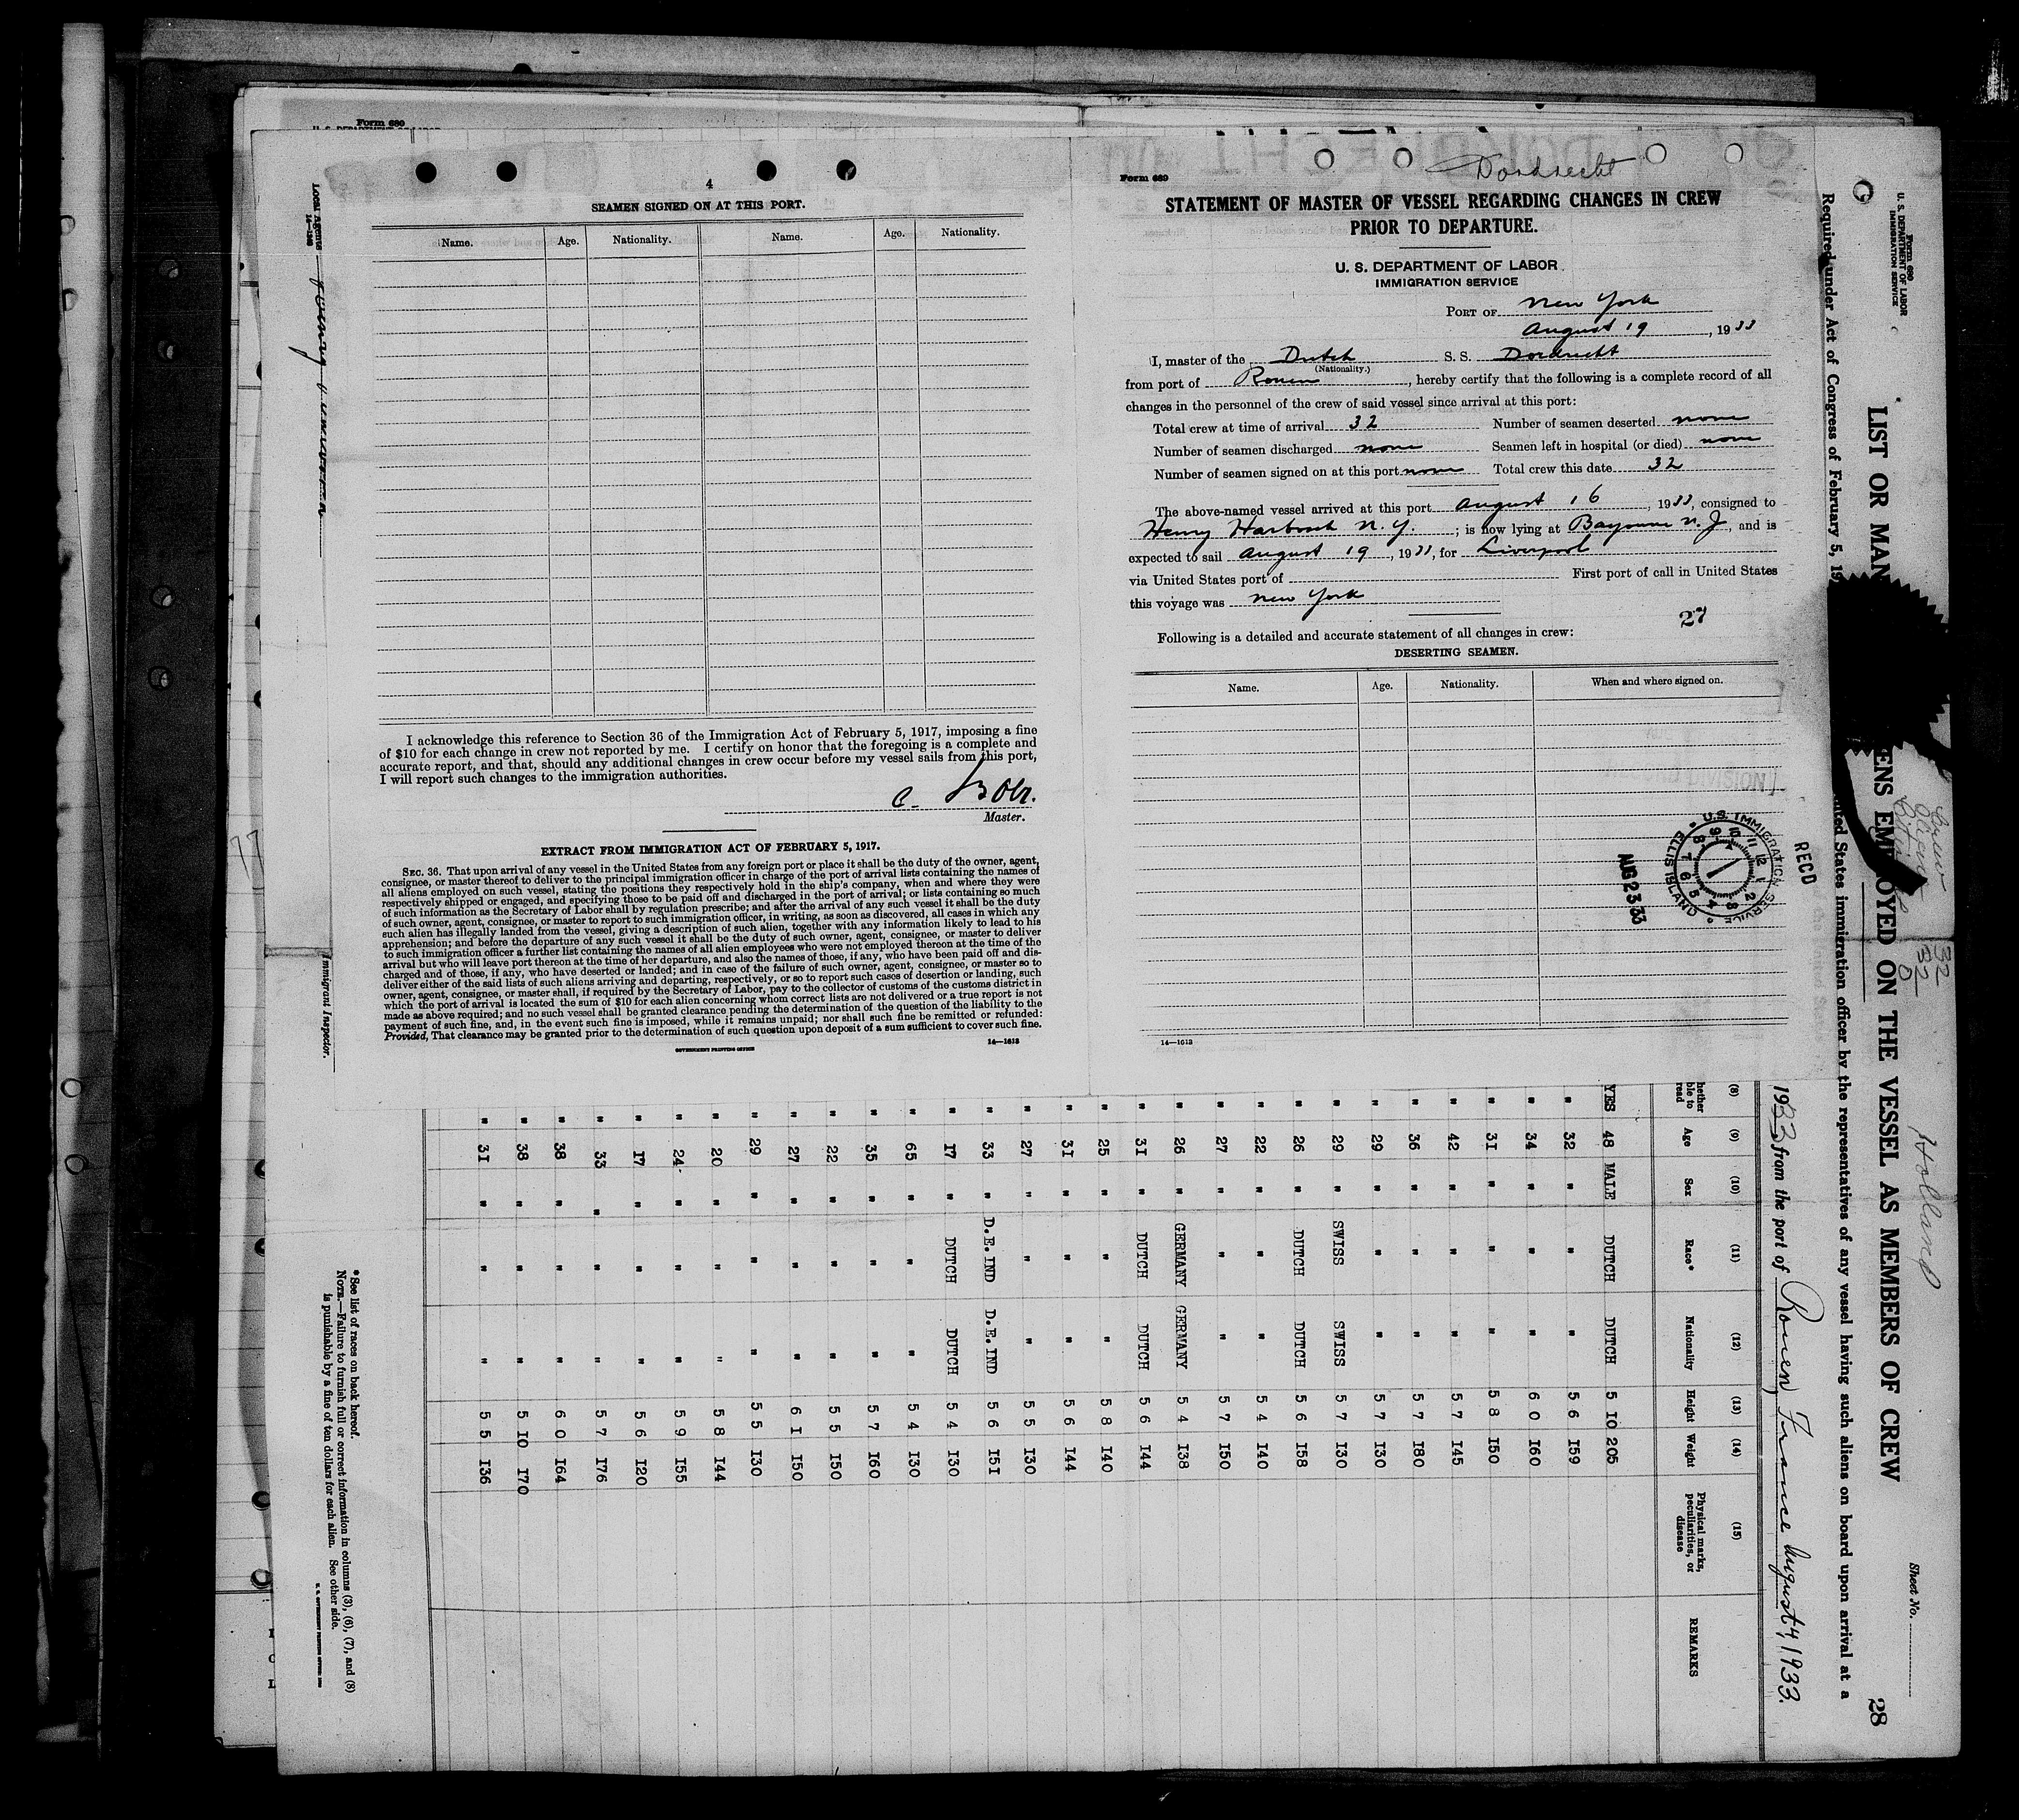 Form 680
4
SEAMEN SIGNED ON AT THIS PORT.
Name. Age. Nationality. Name. Age. Nationality.
I acknowledge this reference to Section 36 of the Immigration Act of February 5, 1917, imposing a fine
of $10 for each change in crew not reported by me. I certify on honor that the foregoing is a complete and
accurate report, and that, should any additional changes in crew occur before my vessel sails from this port,
I will report such changes to the immigration authorities.
C.
Master.
EXTRACT FROM IMMIGRATION ACT OF FEBRUARY 5, 1917.
SEC. 36. That upon arrival of any vessel in the United States from any foreign port or place it shall be the duty of the owner, agent,
consignee, or master thereof to deliver to the principal immigration officer in charge of the port of arrival lists containing the names of
all aliens employed on such vessel, stating the positions they respectively hold in the ship's company, when and where they were
respectively shipped or engaged, and specifying those to be paid off and discharged in the port of arrival; or lists containing so much
of such information as the Secretary of Labor shall by regulation prescribe; and after the arrival of any such vessel it shall be the duty
of such owner, agent, consignee, or master to report to such immigration officer, in writing, as soon as discovered, all cases in which any
such alien has illegally landed from the vessel, giving a description of such alien, together with any information likely to lead to his
apprehension; and before the departure of any such vessel it shall be the duty of such owner, agent, consignee, or master to deliver
to such immigration officer a further list containing the names of all alien employees who were not employed thereon at the time of the
arrival but who will leave port thereon at the time of her departure, and also the names of those, if any, who have been paid off and dis-
charged and of those, if any, who have deserted or landed; and in case of the failure of such owner, agent, consignee, or master so to
deliver either of the said lists of such aliens arriving and departing, respectively, or so to report such cases of desertion or landing, such
owner, agent, consignee, or master shall, if required by the Secretary of Labor, pay to the collector of customs of the customs district in
which the port of arrival is located the sum of $10 for each alien concerning whom correct lists are not delivered or a true report is not
made as above required; and no such vessel shall be granted clearance pending the determination of the question of the liability to the
payment of such fine, and, in the event such fine is imposed, while it remains unpaid; nor shall such fine be remitted or refunded:
Provided, That clearance may be granted prior to the determination of such question upon deposit of a sum sufficient to cover such fine.
GOVERNMENT PRINTING OFFICE 14—1613
Form 689
Dordrecht
STATEMENT OF MASTER OF VESSEL REGARDING CHANGES IN CREW
PRIOR TO DEPARTURE.
U. S. DEPARTMENT OF LABOR
IMMIGRATION SERVICE
PORT OF New York
August 19, 1933
I, master of the Dutch S. S. Dordrecht
(Nationality.)
from port of Rouen, hereby certify that the following is a complete record of all
changes in the personnel of the crew of said vessel since arrival at this port:
Total crew at time of arrival 32 Number of seamen deserted none
Number of seamen discharged none Seamen left in hospital (or died) none
Number of seamen signed on at this port none Total crew this date 32
The above-named vessel arrived at this port August 16, 1933, consigned to
Henry Harbosch N. Y.; is now lying at Bayonne N. J., and is
expected to sail August 19, 1933, for Liverpool
via United States port of First port of call in United States
this voyage was New York
27
Following is a detailed and accurate statement of all changes in crew:
DESERTING SEAMEN.
Name. Age. Nationality. When and where signed on.
14—1613
RECD
U.S. IMMIGRATION SERVICE
ELLIS ISLAND
AUG 23 33
Form 680
U. S. DEPARTMENT OF LABOR
IMMIGRATION SERVICE
Sheet No.
28
Holland
Crew 32
32
0
LIST OR MAN ENS EMPLOYED ON THE VESSEL AS MEMBERS OF CREW
Required under Act of Congress of February 5, 19 United States immigration officer by the representatives of any vessel having such aliens on board upon arrival at a
1933 from the port of Rouen, France August 4, 1933.
(8) (9) (10) (11) (12) (13) (14) (15)
hether ble to read Age Sex Race* Nationality Height Weight Physical marks, peculiarities, or disease REMARKS
YES 48 MALE DUTCH DUTCH 5 10 205
" 32 " " " 5 6 159
" 34 " " " 6 0 160
" 31 " " " 5 8 150
" 42 " " " 5 7 145
" 36 " " " 5 7 180
" 29 " " " 5 7 130
" 29 " SWISS SWISS 5 7 130
" 26 " DUTCH DUTCH 5 6 158
" 22 " " " 5 4 140
" 27 " " " 5 7 150
" 26 " GERMANY GERMANY 5 4 138
" 31 " DUTCH DUTCH 5 6 144
" 25 " " " 5 8 140
" 31 " " " 5 6 144
" 27 " " " 5 5 130
" 33 " D.E.IND D.E.IND 5 6 151
" 17 " DUTCH DUTCH 5 4 130
" 65 " " " 5 4 130
" 35 " " " 5 7 160
" 22 " " " 5 5 150
" 27 " " " 6 1 150
" 29 " " " 5 5 130
" 20 " " " 5 8 144
" 24 " " " 5 9 155
" 17 " " " 5 6 120
" 33 " " " 5 7 176
" 38 " " " 6 0 164
" 38 " " " 5 10 170
" 31 " " " 5 5 136
* See list of races on back hereof.
NOTE.—Failure to furnish full or correct information in columns (3), (6), (7), and (8)
is punishable by a fine of ten dollars for each alien. See other side.
Local Agents
14—1340
Immigrant Inspector.
77